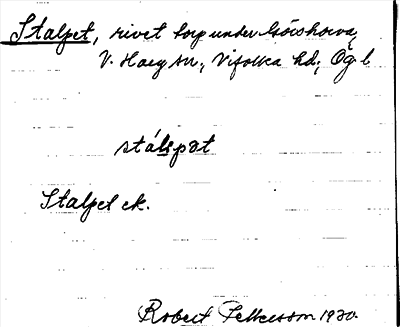 Stalpet, rivet torp under Göishorva,
V. Harg sn., Vifolka hd; Ög l.
stálspat
Stalpet ek.
Robert Pettersson 1930.